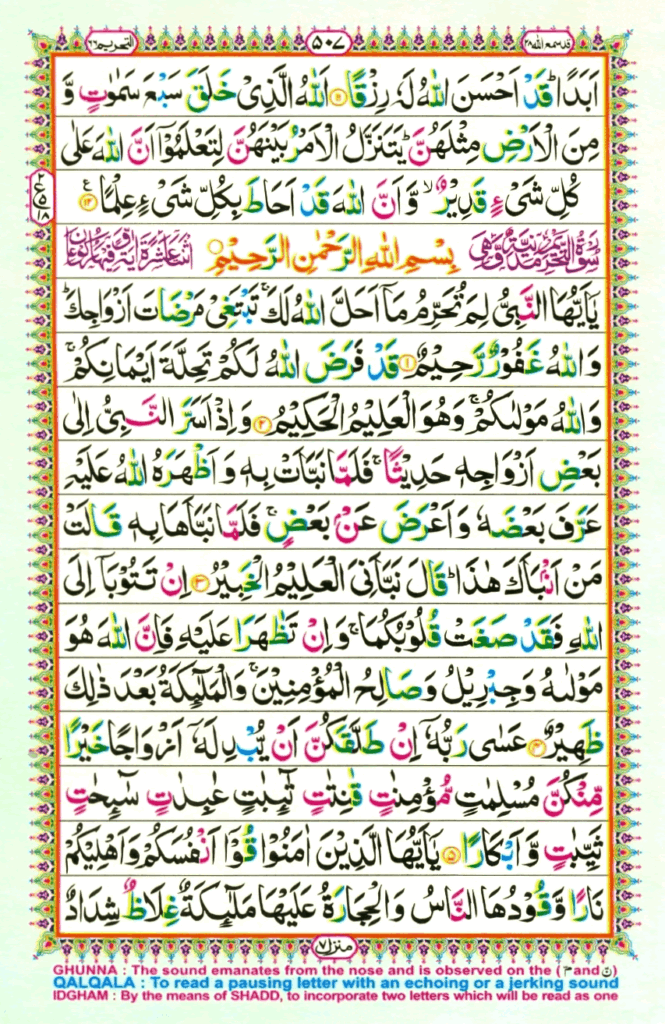 التحريم ٦٦
٥٠٧
قد سمع الله ٢٨
اَبَدًا ؕ قَدْ اَحْسَنَ اللّٰهُ لَهٗ رِزْقًا ﴿۱۱﴾ اَللّٰهُ الَّذِیْ خَلَقَ سَبْعَ سَمٰوٰتٍ وَّ
مِنَ الْاَرْضِ مِثْلَهُنَّ ؕ یَتَنَزَّلُ الْاَمْرُ بَیْنَهُنَّ لِتَعْلَمُوْۤا اَنَّ اللّٰهَ عَلٰی
كُلِّ شَیْءٍ قَدِیْرٌ ۙ وَّ اَنَّ اللّٰهَ قَدْ اَحَاطَ بِكُلِّ شَیْءٍ عِلْمًا ﴿۱۲﴾
سُوْرَةُ التَّحْرِیْمِ مَدَنِیَّةٌ وَّهِیَ بِسْمِ اللّٰهِ الرَّحْمٰنِ الرَّحِیْمِ اثْنَتَا عَشْرَةَ اٰیَةً وَّفِیْهَا رُكُوْعَانِ
یٰۤاَیُّهَا النَّبِیُّ لِمَ تُحَرِّمُ مَاۤ اَحَلَّ اللّٰهُ لَكَ ۚ تَبْتَغِیْ مَرْضَاتَ اَزْوَاجِكَ ؕ
وَ اللّٰهُ غَفُوْرٌ رَّحِیْمٌ ﴿۱﴾ قَدْ فَرَضَ اللّٰهُ لَكُمْ تَحِلَّةَ اَیْمَانِكُمْ ۚ
وَ اللّٰهُ مَوْلٰىكُمْ ۚ وَ هُوَ الْعَلِیْمُ الْحَكِیْمُ ﴿۲﴾ وَ اِذْ اَسَرَّ النَّبِیُّ اِلٰی
بَعْضِ اَزْوَاجِهٖ حَدِیْثًا ۚ فَلَمَّا نَبَّاَتْ بِهٖ وَ اَظْهَرَهُ اللّٰهُ عَلَیْهِ
عَرَّفَ بَعْضَهٗ وَ اَعْرَضَ عَنْۢ بَعْضٍ ۚ فَلَمَّا نَبَّاَهَا بِهٖ قَالَتْ
مَنْ اَنْۢبَاَكَ هٰذَا ؕ قَالَ نَبَّاَنِیَ الْعَلِیْمُ الْخَبِیْرُ ﴿۳﴾ اِنْ تَتُوْبَاۤ اِلَی
اللّٰهِ فَقَدْ صَغَتْ قُلُوْبُكُمَا ۚ وَ اِنْ تَظٰهَرَا عَلَیْهِ فَاِنَّ اللّٰهَ هُوَ
مَوْلٰىهُ وَ جِبْرِیْلُ وَ صَالِحُ الْمُؤْمِنِیْنَ ۚ وَ الْمَلٰٓىِٕكَةُ بَعْدَ ذٰلِكَ
ظَهِیْرٌ ﴿۴﴾ عَسٰی رَبُّهٗۤ اِنْ طَلَّقَكُنَّ اَنْ یُّبْدِلَهٗۤ اَزْوَاجًا خَیْرًا
مِّنْكُنَّ مُسْلِمٰتٍ مُّؤْمِنٰتٍ قٰنِتٰتٍ تٰٓىِٕبٰتٍ عٰبِدٰتٍ سٰٓىِٕحٰتٍ
ثَیِّبٰتٍ وَّ اَبْكَارًا ﴿۵﴾ یٰۤاَیُّهَا الَّذِیْنَ اٰمَنُوْا قُوْۤا اَنْفُسَكُمْ وَ اَهْلِیْكُمْ
نَارًا وَّ قُوْدُهَا النَّاسُ وَ الْحِجَارَةُ عَلَیْهَا مَلٰٓىِٕكَةٌ غِلَاظٌ شِدَادٌ
منزل ٧
GHUNNA : The sound emanates from the nose and is observed on the (م and ن)
QALQALA : To read a pausing letter with an echoing or a jerking sound
IDGHAM : By the means of SHADD, to incorporate two letters which will be read as one